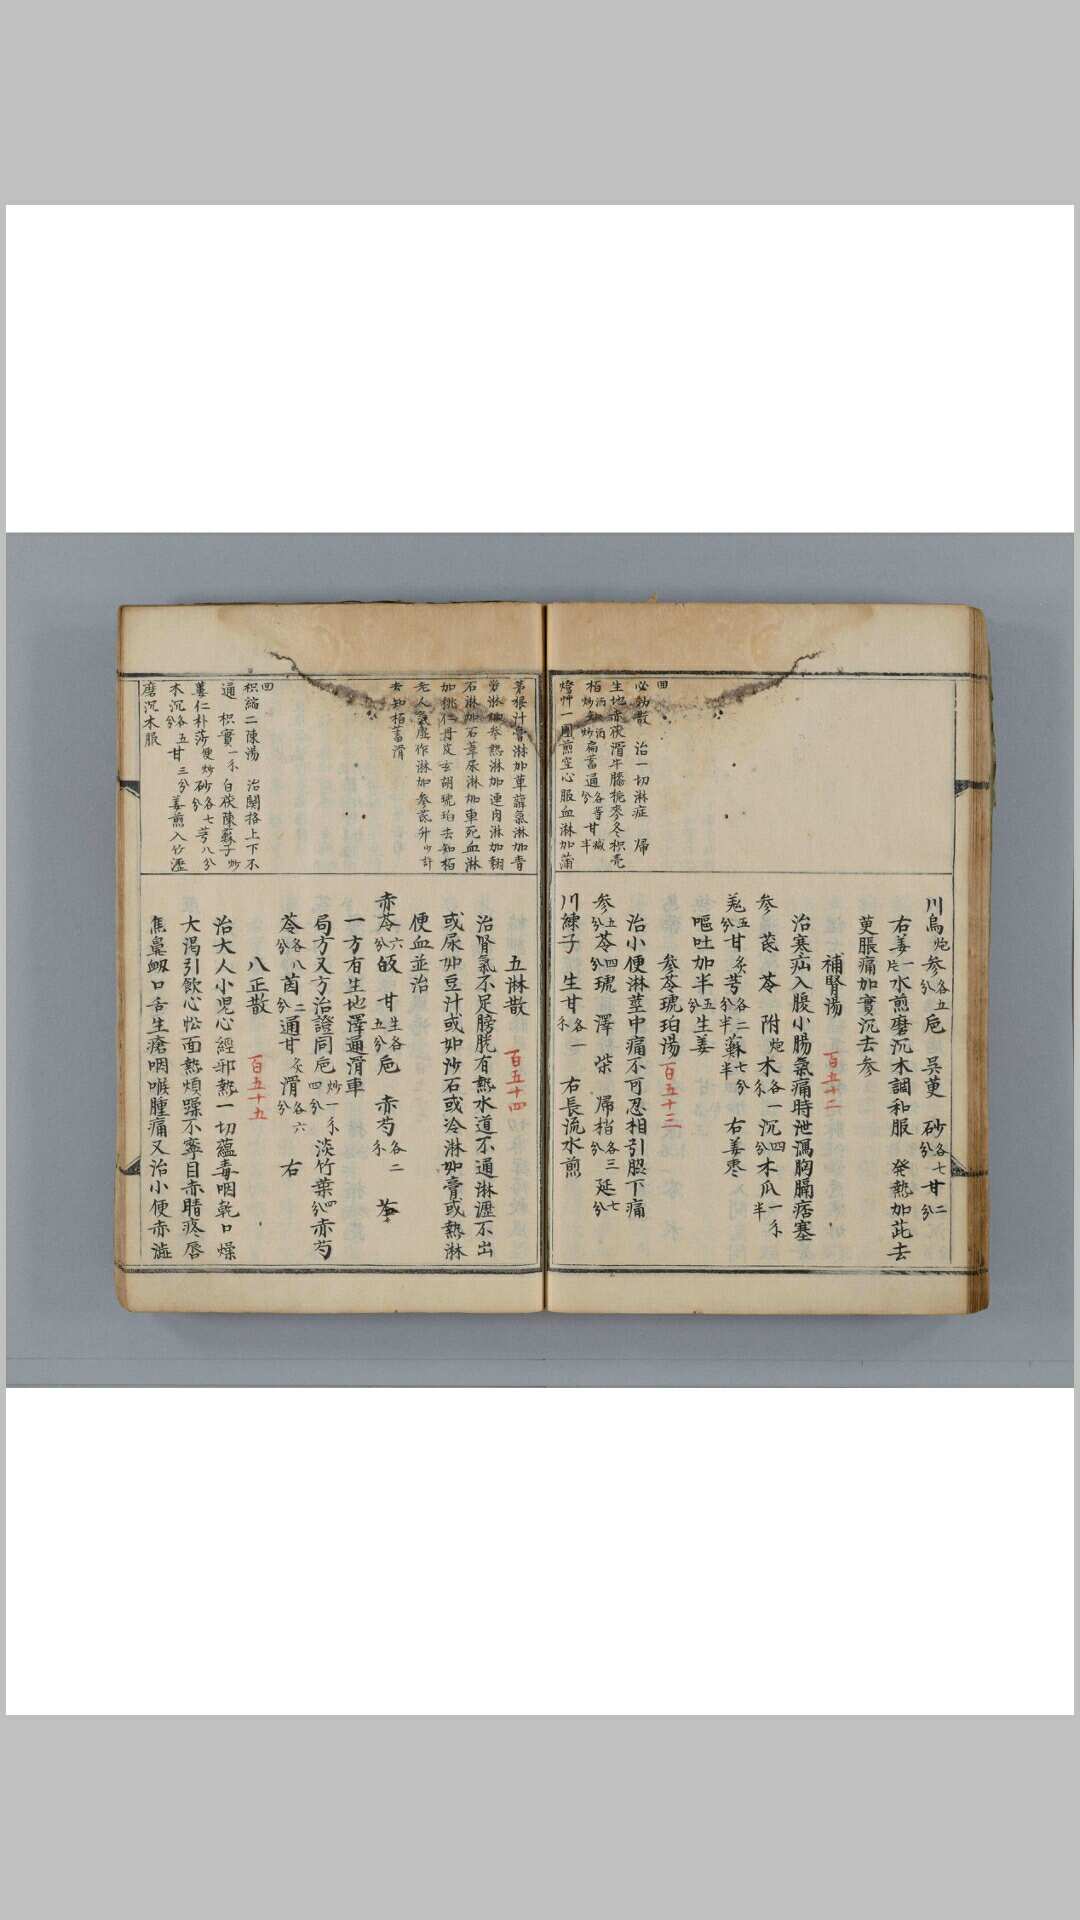 四
必効散 治一切淋症 歸
生地赤茯滑牛膝梔麥冬枳壳
栢酒炒知酒炒扁蓄通各等分甘減半
燈艸一團煎空心服血淋加蒲
川烏炮參各五分巵 吳茰 砂各七分甘二分
右姜一片水煎磨沉木調和服 發熱加茈去
茰脹痛加實沉去參
補腎湯 百五十二
治寒疝入腹小腸氣痛時泄瀉胸膈痞塞
參 芪 苓 附炮木各一爪沉四分木瓜一爪半
羗五分甘炙芎各二分半蘇七分半 右姜枣
嘔吐加半五分生姜
參苓琥珀湯 百五十三
治小便淋莖中痛不可忍相引脇下痛
參五分苓四分琥 澤 柴 歸梢各三分延七分
川練子 生甘各一爪 右長流水煎
茅根汁膏淋加萆薢氣淋加青
勞淋加參熱淋加連肉淋加翹
石淋加石葦尿淋加車死血淋
加桃仁丹皮玄胡琥珀去知栢
老人氣虛作淋加參芪升少許
去知栢蓄滑
四
枳縮二陳湯 治関格上下不
通 枳實一爪白茯陳蘇子炒
蔞仁朴莎便炒砂各七分芎八分
木沉各五分甘三分姜煎入竹瀝
磨沉木服
五淋散 百五十四
治腎氣不足膀胱有熱水道不通淋瀝不出
或尿如豆汁或如沙石或冷淋如膏或熱淋
便血並治
赤苓六分皈 甘生各五分巵 赤芍各二爪
一方有生地澤通滑車
局方又方治證同巵炒一爪四分淡竹葉四分赤芍
苓各八分茵二分通甘炙滑各六分 右
八正散 百五十五
治大人小児心經邪熱一切蘊毒咽乾口燥
大渴引飲心忪面熱煩躁不寧目赤睛疼唇
焦鼻衂口舌生瘡咽喉腫痛又治小便赤澁